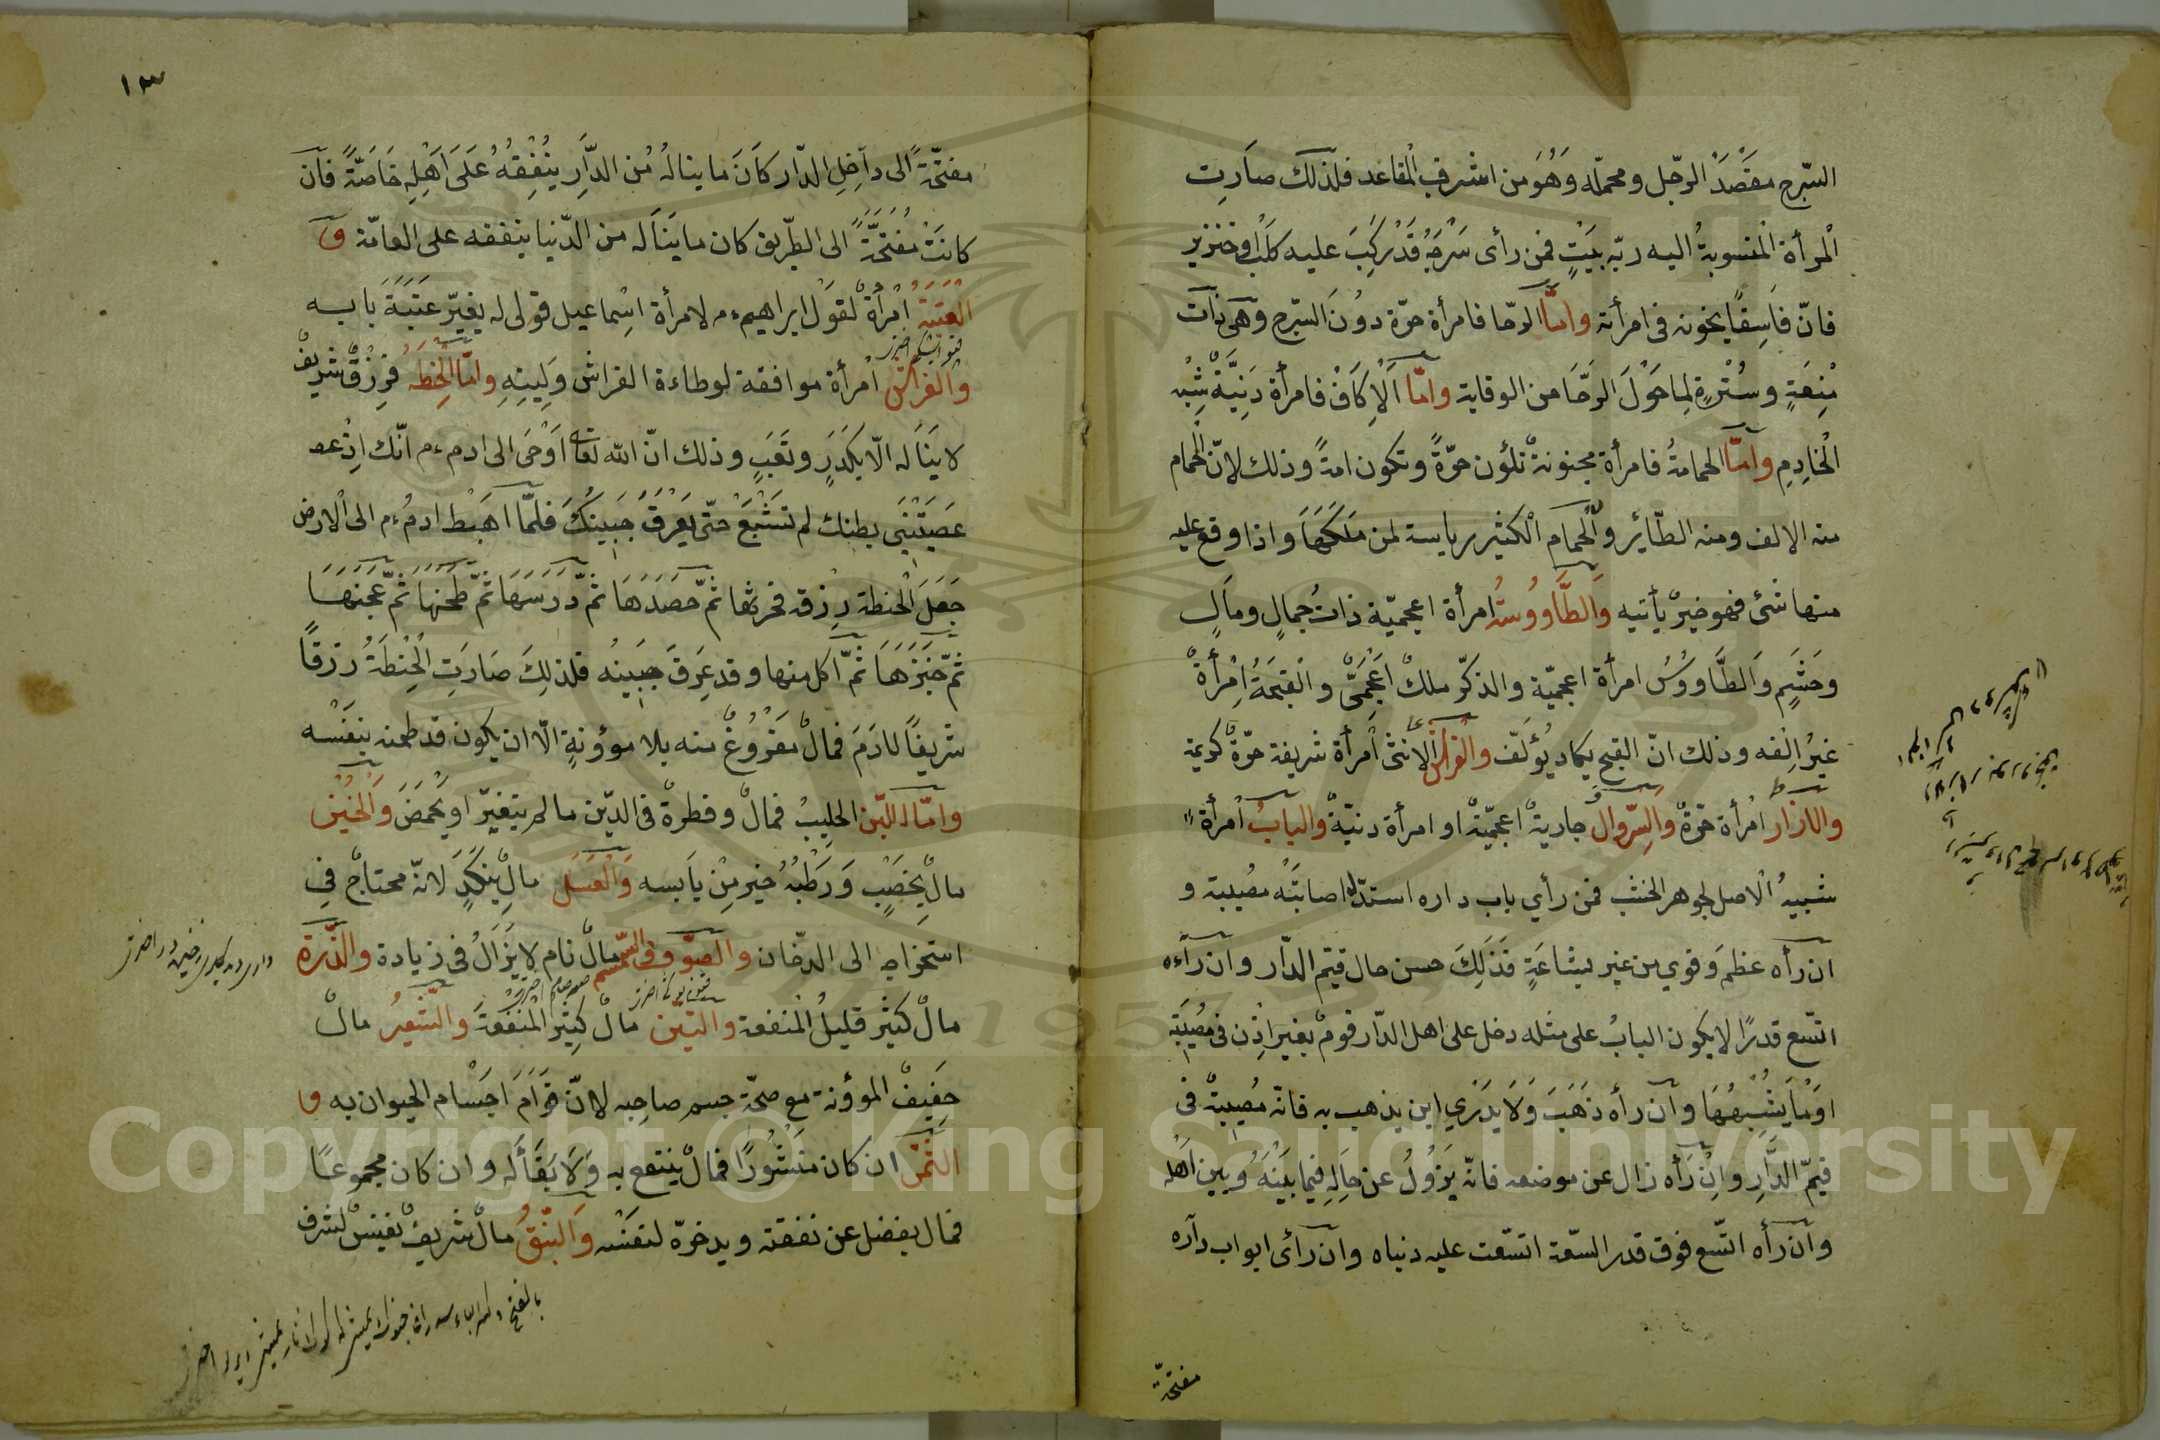 السّرج مقصد الرّجل ومحمله وهو من اشرف المقاعد فلذلك صارت
المرأة المنسوبة اليه ربّه بيت فمن رأى سرجه قد ركب عليه كلب او خنزير
فانّ فاسقًا يخونه فى امرأته وامّا الرحا فامرأة حرّة دون السّرج وهى ذات
منعة وسترة لما حول الرّحا من الوقاية وامّا الاكاف فامرأة دنيّة شبه
الخادم وامّا الحمامة فامرأة مجنونة تلؤن حرّةً وتكون امةً وذلك لانّ الحمام
منه الالف ومنه الطّائر والحمام الكثير رياسة لمن ملكها واذا وقع عليه
منها شئ فهو خير يأتيه والطّاووسة امرأة اعجميّة ذات جمال ومال
وحشم والطّاووس امرأة اعجميّة والذكر ملك اعجمىّ والقبجة امرأة
غير الفه وذلك انّ القبج يكاد يؤلف والفرس الانثى امرأة شريفة حرّة كريمة
والازار امرأة حرّة والسّروال جارية اعجميّة او امرأة دنيّة والباب امرأة
شبيه الاصل لجوهر الخشب فمن رأي باب داره استدّ اصابته مصيبة و
ان رأه عظم وقوي من غير بشاعة فذلك حسن حال قيّم الدّار وان راءه
اتّسع قدرًا لا يكون الباب على مثله دخل على اهل الدّار قوم بغير اذن فى مصيبة
او ما يشبهها وان رأه ذهب ولا يدري اين يذهب به فانّه مصيبة فى
قيّم الدّار وان رأه زال عن موضعه فانّه يزول عن حاله فيما بينه وبين اهله
وان رأه اتّسع فوق قدر السّعة اتسّعت عليه دنياه وان رأى ابواب داره
مفتحّة
١٣
مفتحّة الى داخل الدّار كان ما يناله من الدّار ينفقه على اهله خاصّة فان
كانت مفتحّة الى الطّريق كان ما يناله من الدّنيا ينفقه على العامّة و
العتبة امرأة لقول ابراهيم ءم لامرأة اسماعيل قولى له يغيّر عتبة بابه
والفراش امرأة موافقة لوطاءة الفراش ولينه وامّا الحنطة فرزق شريف
لا يناله الّا بكدر وتعب وذلك انّ الله تعا اوحى الى ادم ءم انّك اذ عص
عصيتنى بطنك لم تشبع حتّى يعرق جبينك فلمّا اهبط ادم ءم الى الارض
جعل الحنطة رزقه فحرثها ثمّ حصدها ثمّ درسها ثمّ طحنها ثمّ عجنها
ثمّ خبزها ثمّ اكل منها وقد عرق جبينه فلذلك صارت الحنطة رزقا
شريفًا لادم فمال مفروغ منه بلا مؤونة الّا ان يكون قد طحنه بنفسه
وامّا اللبن الحليب فمال وفطرة فى الدّين ما لم يتغيّر او يحمض والجبن
مال بخصب ورطبه خير من يابسه والعسل مال بنكد لانّه محتاج فى
استخراجه الى الدخان والصّوف والسّمسم مال نام لا يزال فى زيادة والذّرة
مال كثير قليل المنفعة والتين مال كثير المنفعة والشّعير مال
خفيف المؤونة مع صحّة جسم صاحبه لانّ قوام اجسام الحيوان به و
التّمر ان كان منثورًا فمال ينتفع به ولا بقأله وان كان مجموعًا
فمال يفضل عن نفقته ويدخره لنفسه والنّبق مال شريف نفيس لشرف
Copyright © King Saud University
1957